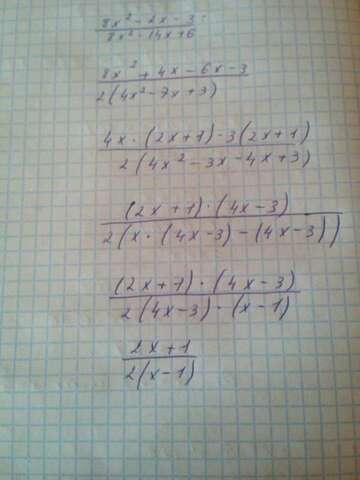 8x² - 2x - 3
8x² - 14x + 6
8x² + 4x - 6x - 3
2(4x² - 7x + 3)
4x · (2x + 1) - 3(2x + 1)
2(4x² - 3x - 4x + 3)
(2x + 1) · (4x - 3)
2(x · (4x - 3) - (4x - 3))
(2x + 1) · (4x - 3)
2(4x - 3) · (x - 1)
2x + 1
2(x - 1)